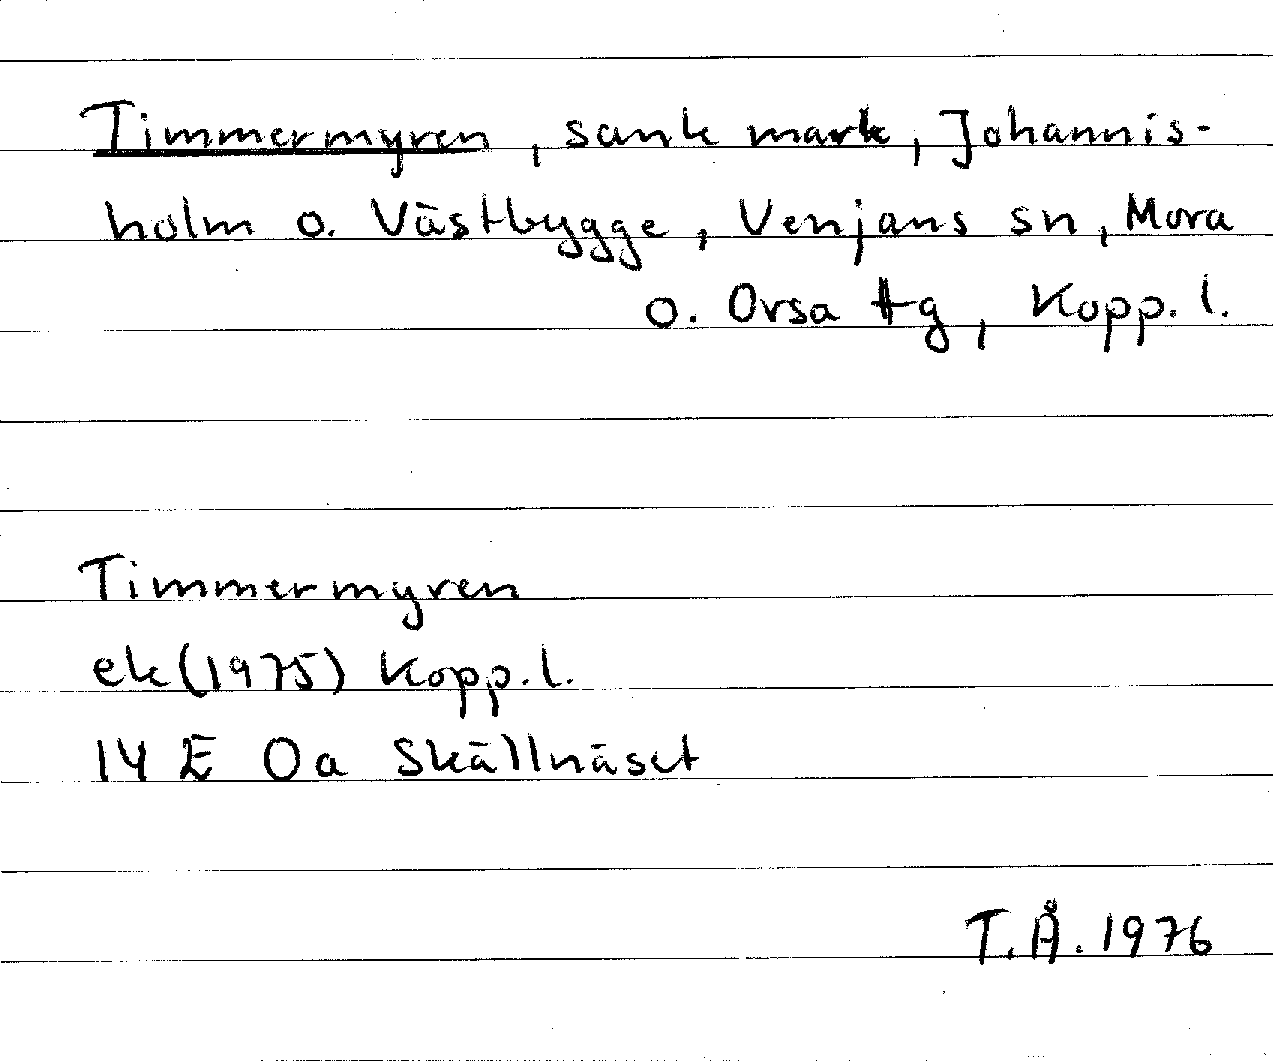 Timmermyren, sank mark, Johannis-
holm o. Västbygge, Venjans sn, Mora
o. Orsa tg, Kopp. l.
Timmermyren
ek (1975) Kopp. l.
14 E 0a Skällnäset
T.Å. 1976